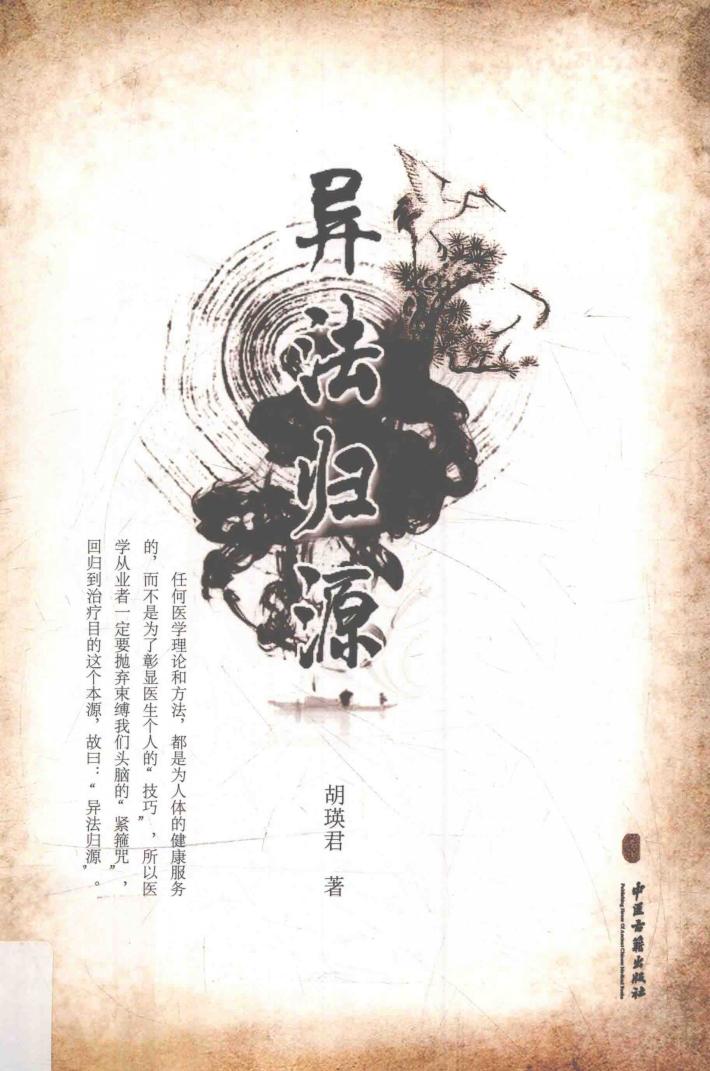 异法归源
任何医学理论和方法，都是为人体的健康服务
的，而不是为了彰显医生个人的“技巧”，所以医
学从业者一定要抛弃束缚我们头脑的“紧箍咒”，
回归到治疗目的这个本源，故曰：“异法归源”。
胡瑛君 著
中医古籍出版社
Publishing House Of Ancient Chinese Medical Books